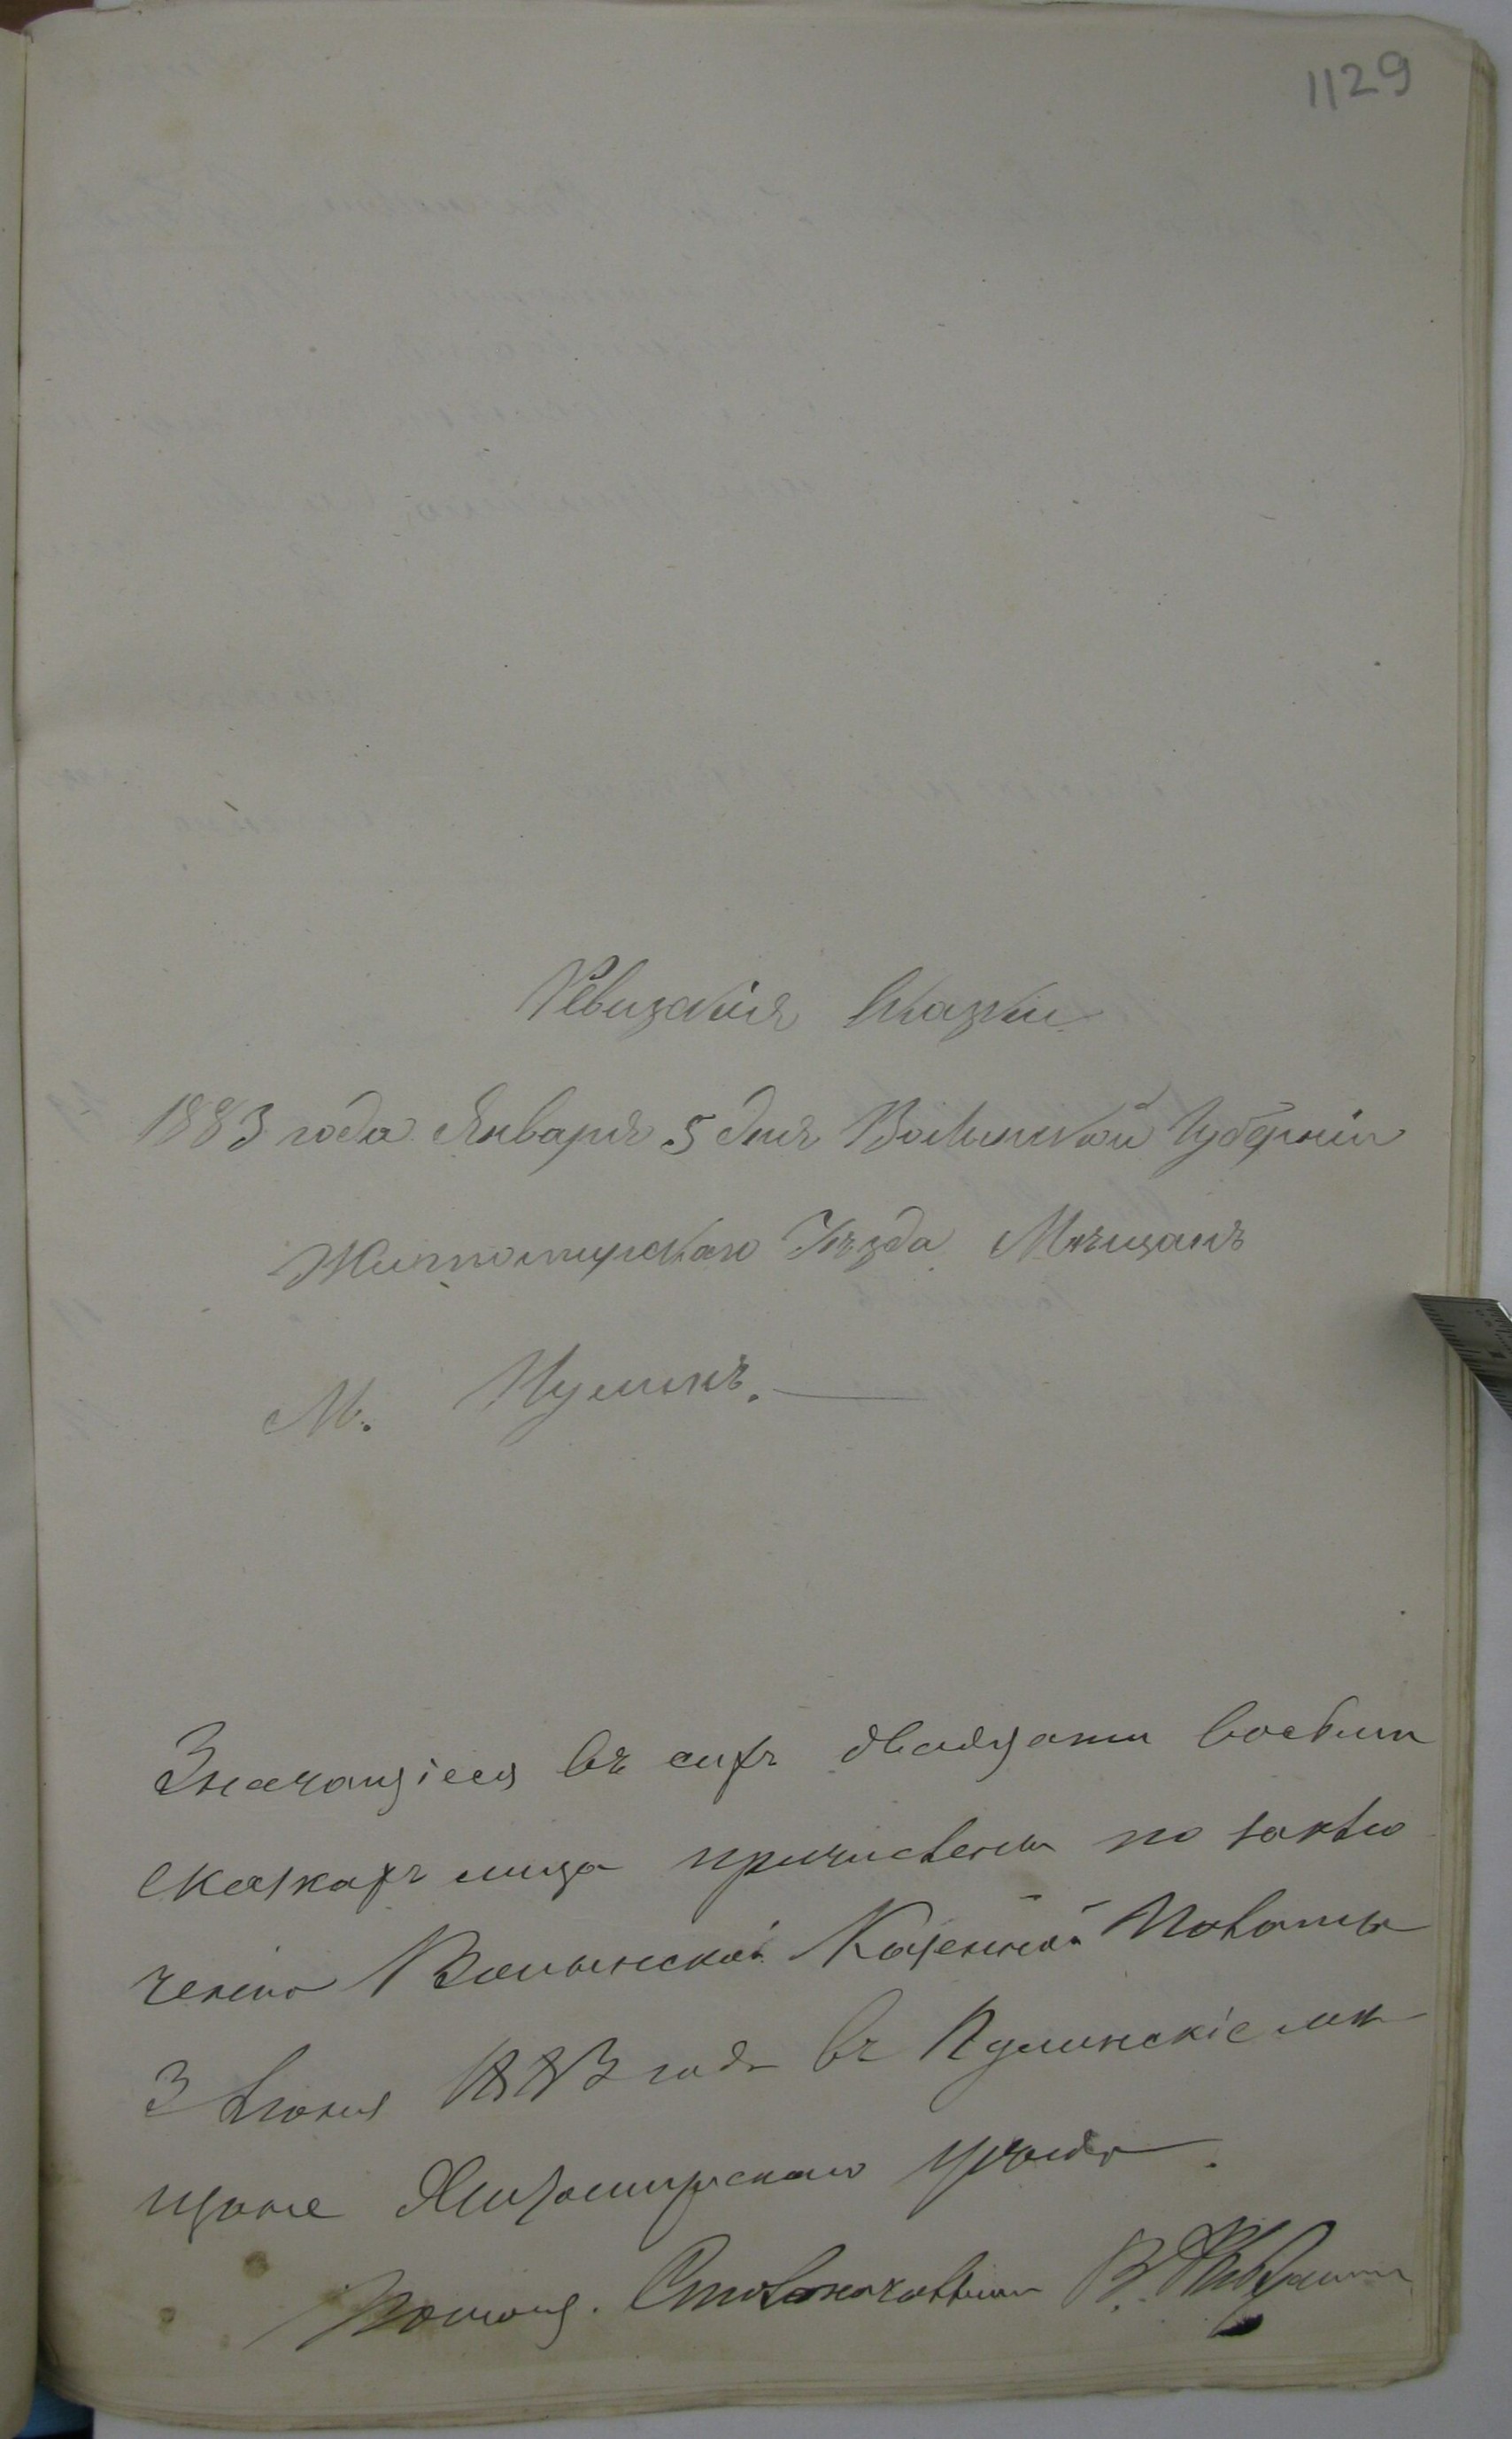 1129
Ревизскія Сказки
1883 года Января 5 дня Волынской Губерніи
Житомирскаго Уѣзда Мѣщанъ
М. Пулинъ.
Значащіеся въ сихъ двадцати восьми
сказкахъ лица причислены по заклю
ченію Волынской Казенной Палаты
3 Іюня 1883 года въ Пулинскіе мѣ
щане Житомирскаго уѣзда.
Помощ. Столоначальника В.